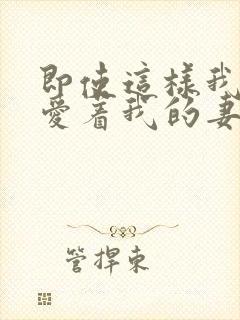 即使這樣我
愛着我的妻
管捍东